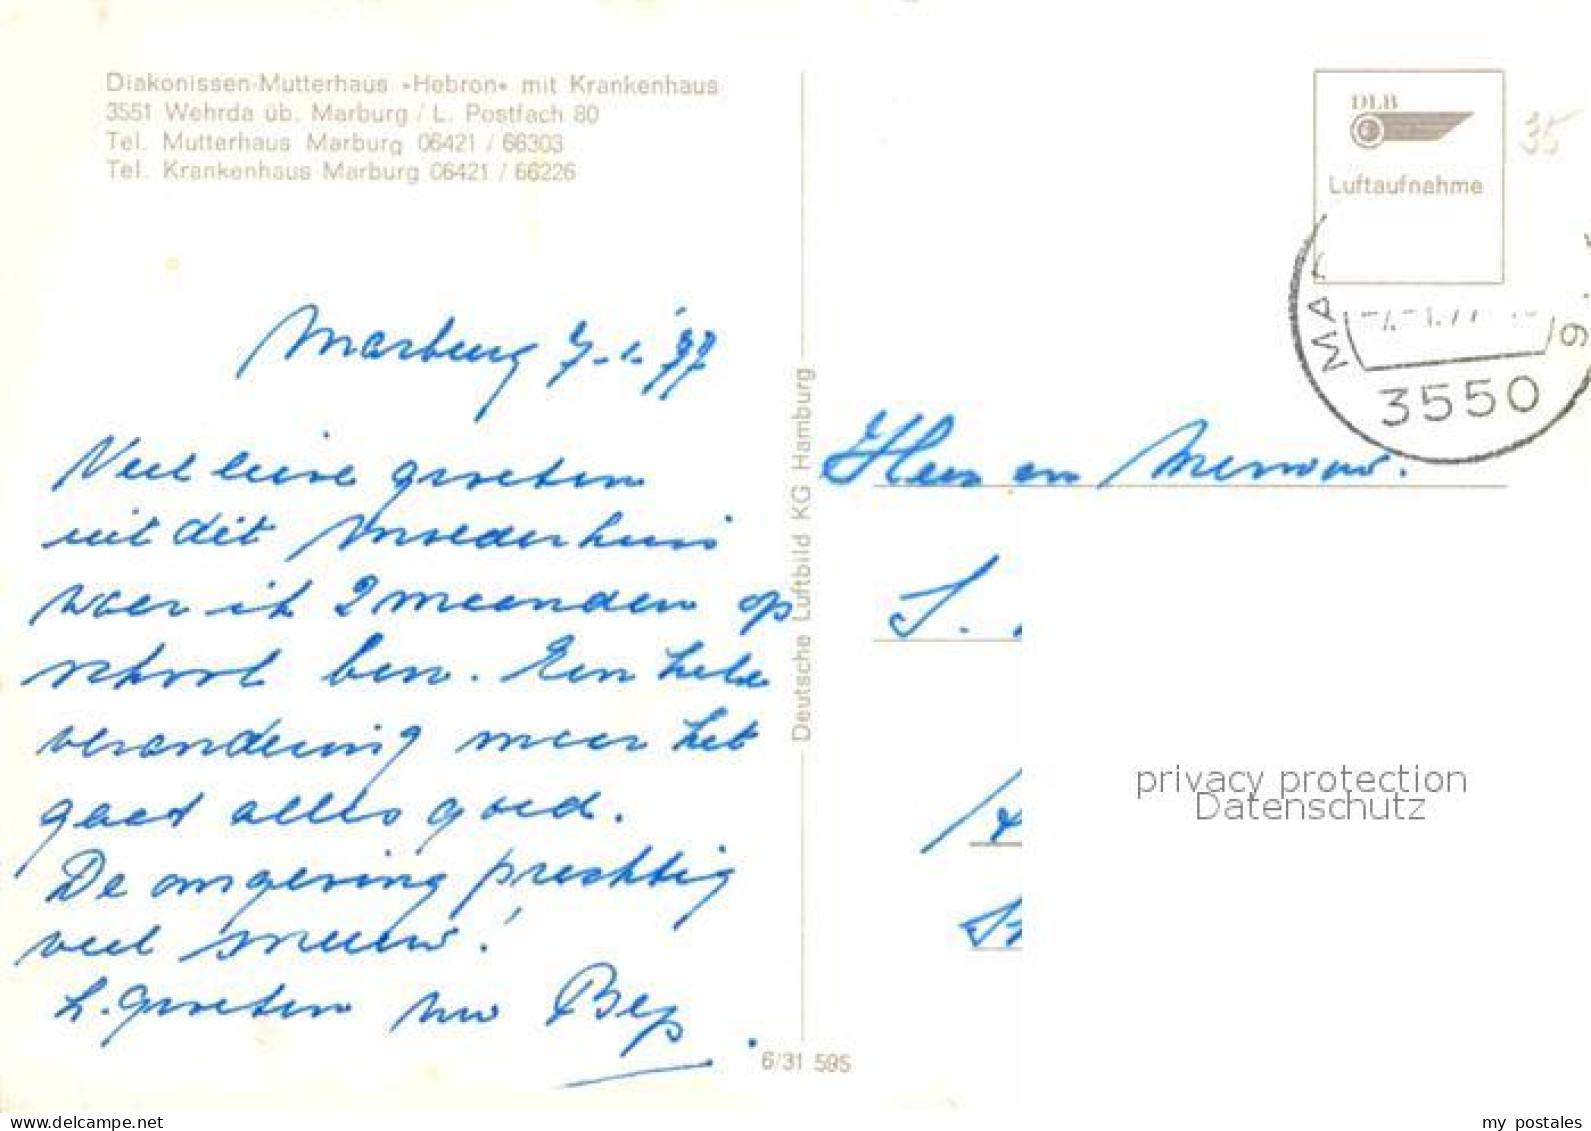 Diakonissen-Mutterhaus »Hebron« mit Krankenhaus
3551 Wehrda üb. Marburg / L. Postfach 80
Tel. Mutterhaus Marburg 06421 / 66303
Tel. Krankenhaus Marburg 06421 / 66226
Marburg 7-1-'77
Veel lieve groeten
uit dit Moederhuis
waar ik 2 maanden op
school ben. Een hele
verandering maar het
gaat alles goed.
De omgeving prachtig
veel sneeuw!
h. groeten Bep.
Deutsche Luftbild KG Hamburg
6/31 595
DLB
Luftaufnahme
35
3550
Heer en Mevrouw.
S.
privacy protection
Datenschutz
www.delcampe.net
my_postales